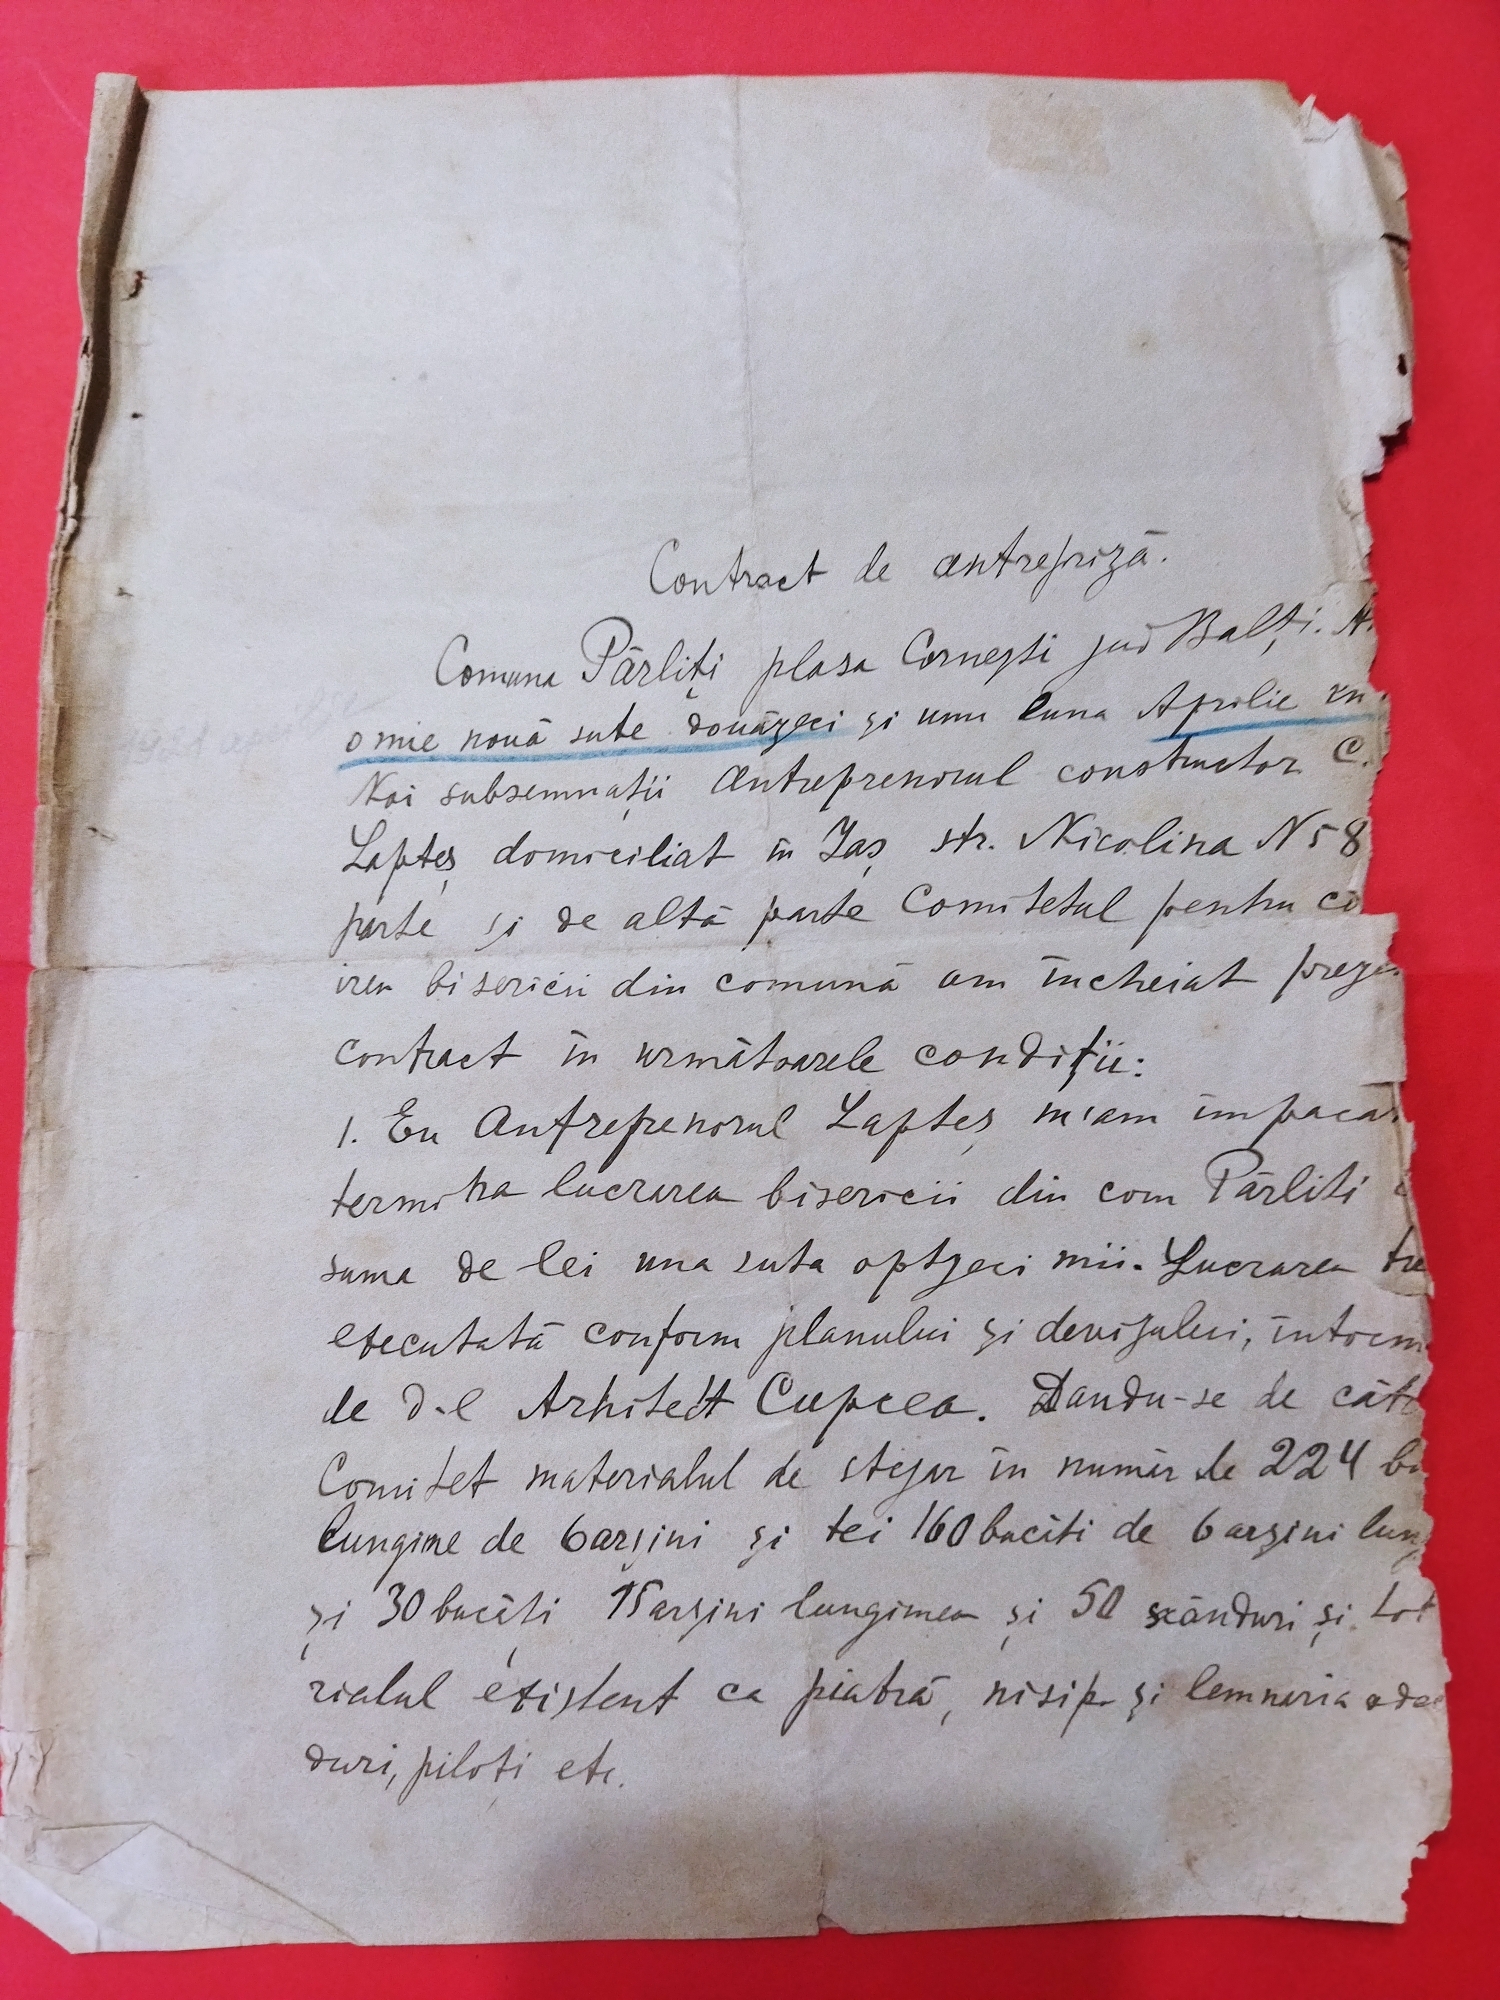 Contract de antrepriză.
Comuna Pârliți plasa Cornești jud Balți.
o mie nouă sute douăzeci și unu luna Aprilie
Noi subsemnații Antreprenorul constructor C.
Lapteș domiciliat în Iaș str. Nicolina N 58
parte și de altă parte Comitetul pentru
irea bisericii din comună am încheiat
contract în următoarele condiții:
1. Eu Antreprenorul Lapteș m'am împăcat
termina lucrarea bisericii din com Pârliti
suma de lei una suta optzeci mii. Lucrarea tre
executată conform planului și devizului, întocm
de d-l Arhitect Cupcea. Dandu-se de căt
Comitet materialul de stejar în număr de 224 bu
lungime de 6 arșini și tei 160 bucăti de 6 arșini lung
și 30 bucăți 15 arșini lungimea și 50 scânduri și tot
rialul existent ca piatră, nisip și lemnăria
duri, piloți etc.